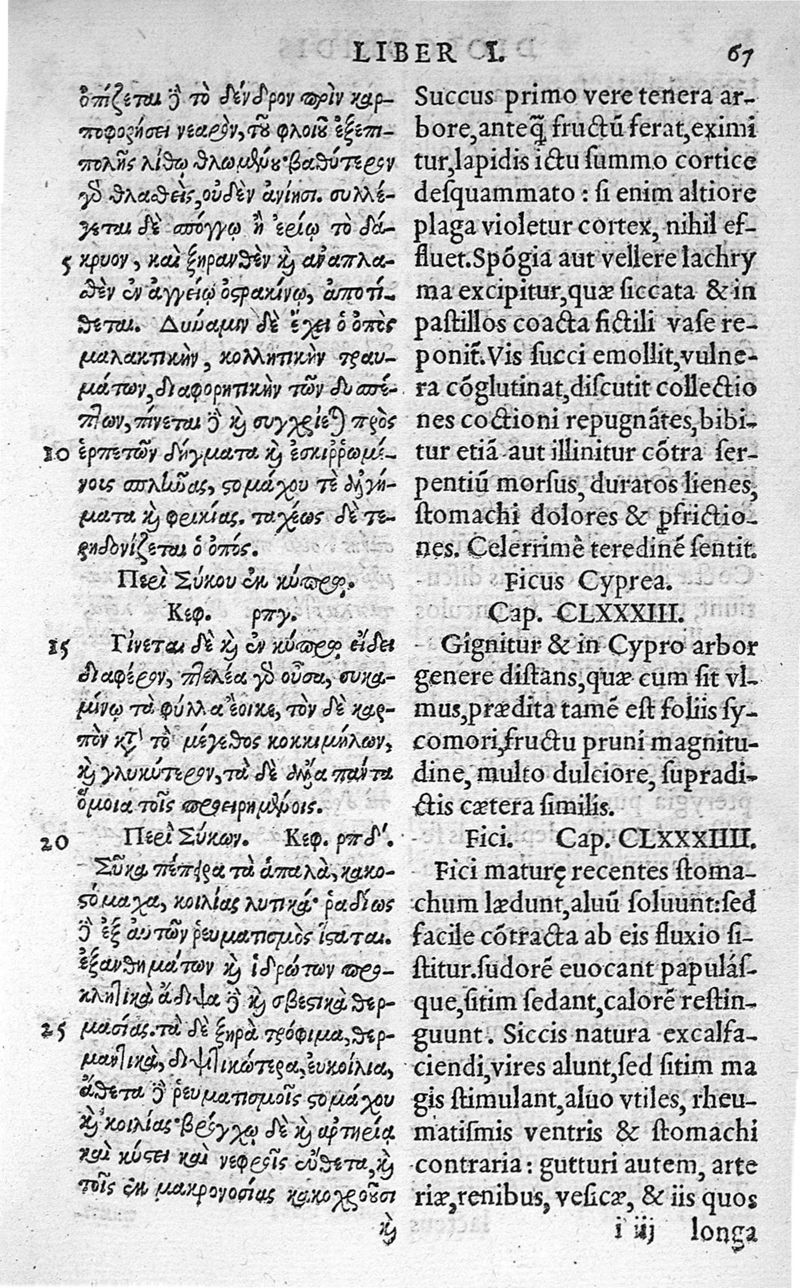 LIBER I. 67
ὀπίζεται ἢ τὸ δένδρον πρὶν καρ-
ποφορήσει νεαρὸν, τοῦ φλοιοῦ ἐξεπι-
πολῆς λίθῳ θλωμένου· βαθύτερον
γὸ θλαθεὶς, οὐδὲν ἀνίησι. συλλέ-
γεται δὲ σπόγγῳ ἢ ἐρίῳ τὸ δά-
5 κρυον, καὶ ξηρανθὲν κὶ ἀναπλα-
θὲν ἐν ἀγγείῳ ὀστρακίνῳ, ἀποτί-
θεται. Δύναμιν δὲ ἔχει ὁ ὀπὸς
μαλακτικὴν, κολλητικὴν τραυ-
μάτων, διαφορητικὴν τῶν δυσπέ-
πτων, πίνεται ἢ κὶ συγχρίεται πρὸς
10 ἑρπετῶν δήγματα κὶ ἐσκιῤῥωμέ-
νοις σπλῆνας, στομάχου τὲ ἀλγή-
ματα κὶ φρικίας. ταχέως δὲ τε-
ρηδονίζεται ὁ ὀπός.
Περὶ Σύκου ἐν κύπρῳ.
Κεφ. ρπγ.
15 Γίνεται δὲ κὶ ἐν κύπρῳ εἴδει
διαφέρον, πτελέα γὸ οὖσα, συκα-
μίνῳ τὰ φύλλα ἔοικε, τὸν δὲ καρ-
πὸν κτ' τὸ μέγεθος κοκκιμήλων,
κὶ γλυκύτερον, τὰ δὲ ἄλλα πάντα
ὅμοια τοῖς προειρημένοις.
20 Περὶ Σύκων. Κεφ. ρπδ'.
Σῦκα πέπειρα τὰ ἁπαλὰ, κακο-
στόμαχα, κοιλίας λυτικά· ῥαδίως
ἢ ἐξ αὐτῶν ῥευματισμὸς ἵσταται.
ἐξανθημάτων κὶ ἱδρώτων προ-
κλητικὰ, ἄδιψα ἢ κὶ σβεστικὰ θερ-
25 μασίας. τὰ δὲ ξηρὰ τρόφιμα, θερ-
μαντικὰ, διψητικώτερα, εὐκοίλια,
ἄθετα ἢ ῥευματισμοῖς στομάχου
κὶ κοιλίας· βρόγχῳ δὲ κὶ ἀρτηρίᾳ
καὶ κύστει καὶ νεφροῖς εὔθετα, κὶ
τοῖς ἐκ μακρονοσίας κακοχροοῦσι
κὶ
Succus primo vere tenera ar-
bore, anteq̃ fructũ ferat, eximi
tur, lapidis ictu summo cortice
desquammato : si enim altiore
plaga violetur cortex, nihil ef-
fluet. Spõgia aut vellere lachry
ma excipitur, quæ siccata & in
pastillos coacta fictili vase re-
ponit̃. Vis succi emollit, vulne-
ra cõglutinat, discutit collectio
nes coctioni repugnãtes, bibi-
tur etiã aut illinitur cõtra ser-
pentiũ morsus, duratos lienes,
stomachi dolores & ꝑfrictio-
nes. Celerrimè teredinẽ sentit.
Ficus Cyprea.
Cap. CLXXXIII.
Gignitur & in Cypro arbor
genere distans, quæ cum sit vl-
mus, prædita tamẽ est foliis sy-
comori, fructu pruni magnitu-
dine, multo dulciore, supradi-
ctis cætera similis.
Fici. Cap. CLXXXIIII.
Fici maturę recentes stoma-
chum lædunt, aluũ soluunt: sed
facile cõtracta ab eis fluxio si-
stitur. sudorẽ euocant papulás-
que, sitim sedant, calorẽ restin-
guunt. Siccis natura excalfa-
ciendi, vires alunt, sed sitim ma
gis stimulant, aluo vtiles, rheu-
matismis ventris & stomachi
contraria : gutturi autem, arte
riæ, renibus, vesicæ, & iis quos
i iij longa